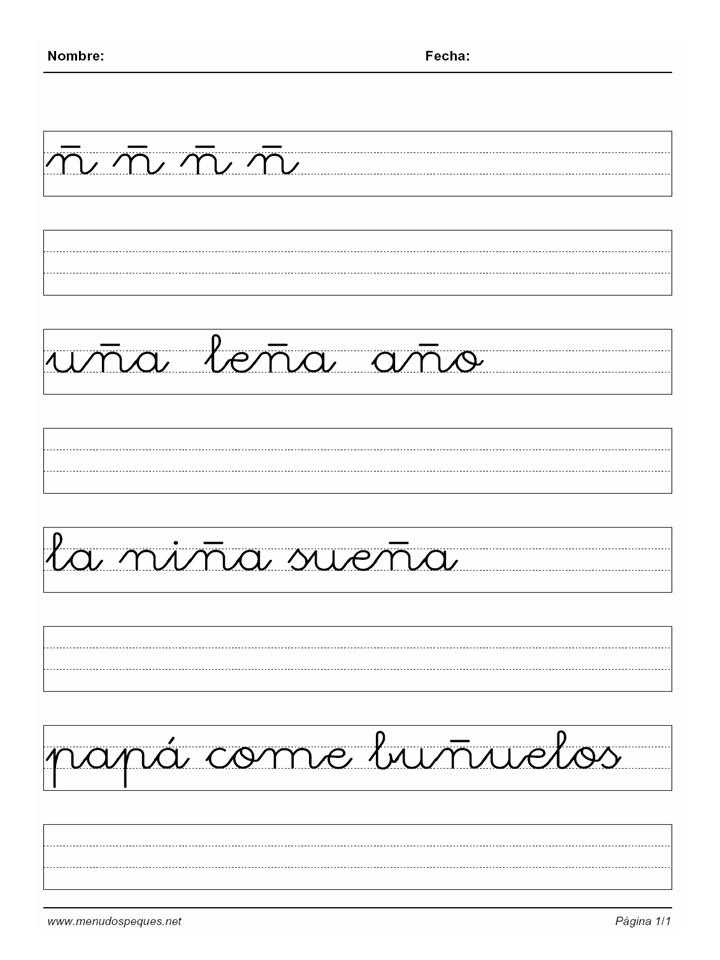 Nombre: Fecha:
ñ ñ ñ ñ
uña leña año
la niña sueña
papá come buñuelos
www.menudospeques.net Página 1/1